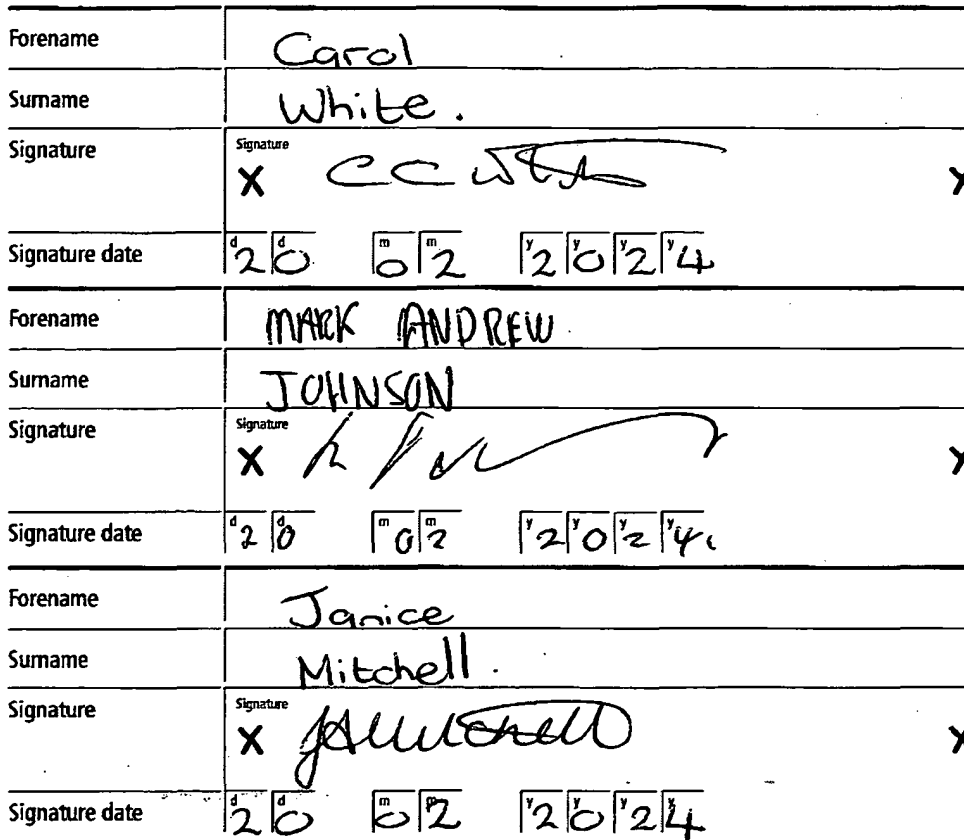 Forename Carol
Surname White.
Signature Signature X CC White X
Signature date d2 d0 m0 m2 y2 y0 y2 y4
Forename MARK ANDREW
Surname JOHNSON
Signature Signature X X
Signature date d2 d0 m0 m2 y2 y0 y2 y4
Forename Janice
Surname Mitchell.
Signature Signature X JAMitchell X
Signature date d2 d0 m0 m2 y2 y0 y2 y4